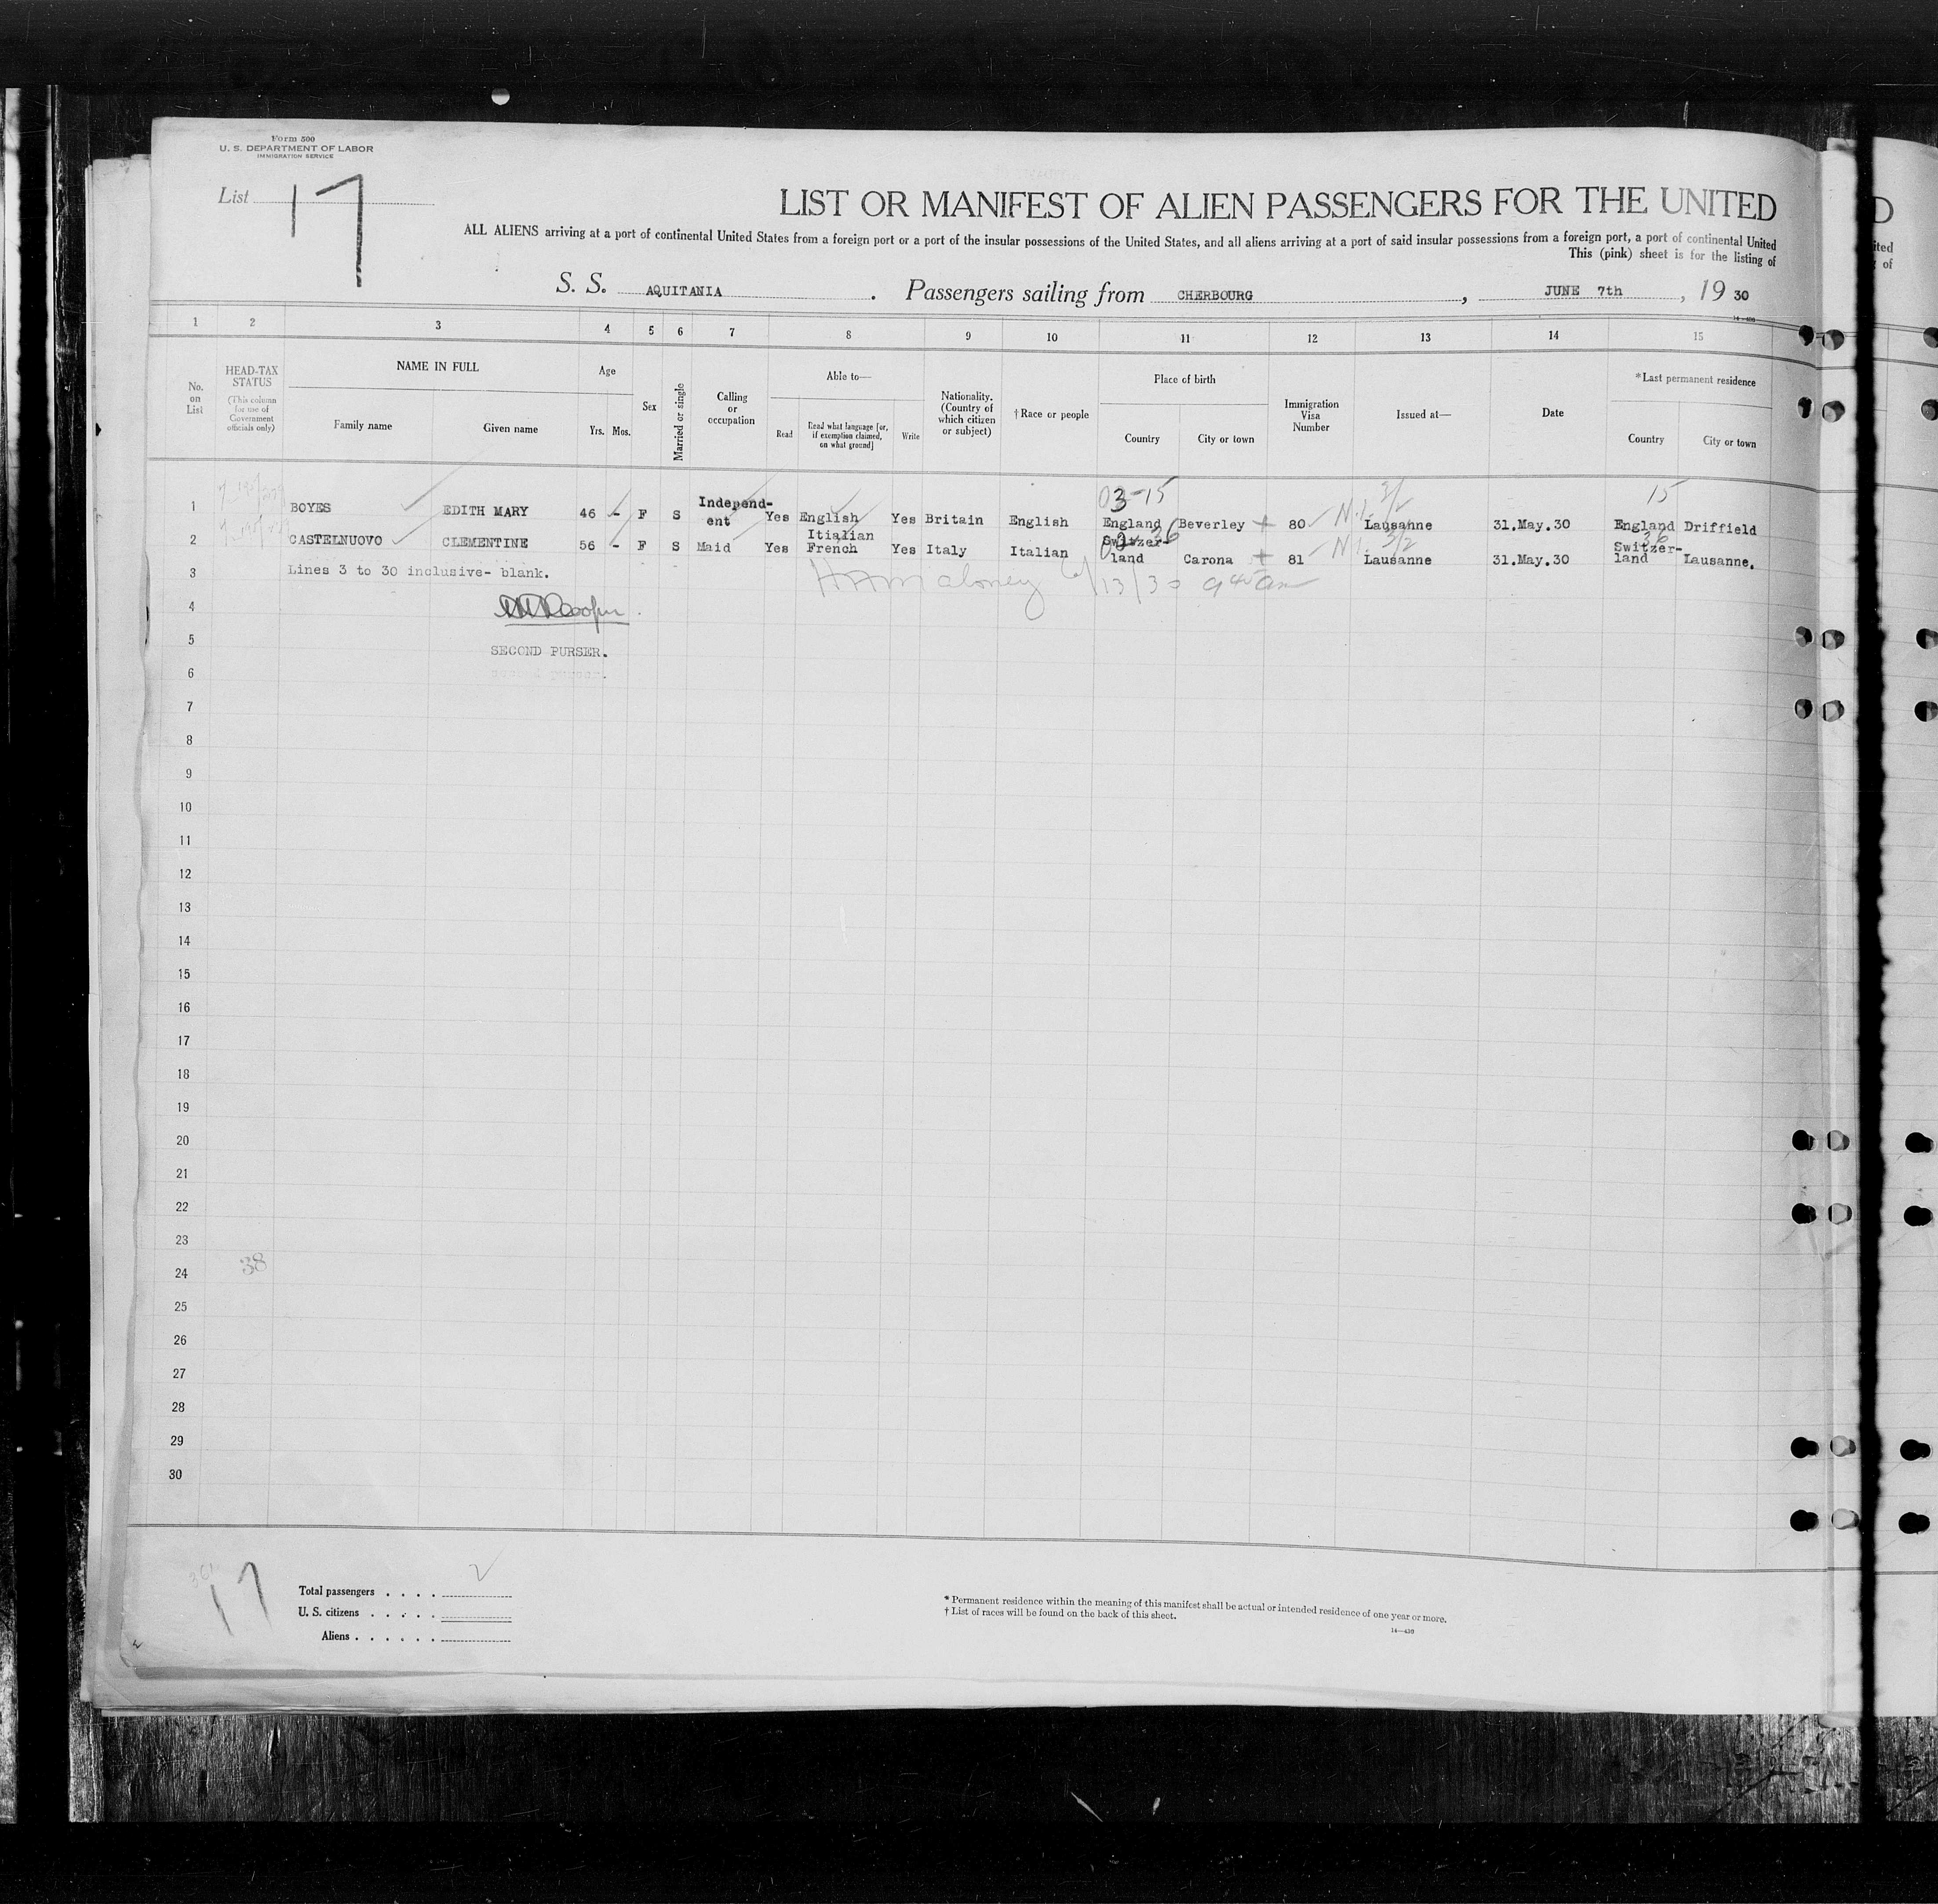 Form 500
U. S. DEPARTMENT OF LABOR
IMMIGRATION SERVICE
List 17
LIST OR MANIFEST OF ALIEN PASSENGERS FOR THE UNITED
ALL ALIENS arriving at a port of continental United States from a foreign port or a port of the insular possessions of the United States, and all aliens arriving at a port of said insular possessions from a foreign port, a port of continental United
This (pink) sheet is for the listing of
S. S. AQUITANIA . Passengers sailing from CHERBOURG , JUNE 7th , 19 30
1 2 3 4 5 6 7 8 9 10 11 12 13 14 15
No. on List
HEAD-TAX STATUS
(This column for use of Government officials only)
NAME IN FULL
Family name Given name
Age
Yrs. Mos.
Sex
Married or single
Calling or occupation
Able to—
Read
Read what language [or, if exemption claimed, on what ground]
Write
Nationality. (Country of which citizen or subject)
† Race or people
Place of birth
Country City or town
Immigration Visa Number
Issued at—
Date
*Last permanent residence
Country City or town
03-15 15
1 BOYES EDITH MARY 46 - F S Independ-ent Yes English Yes Britain English England Beverley 80 Lausanne 31.May.30 England Driffield
36 36
2 CASTELNUOVO CLEMENTINE 56 - F S Maid Yes Itialian French Yes Italy Italian Switzer-land Carona 81 Lausanne 31.May.30 Switzer-land Lausanne.
3 Lines 3 to 30 inclusive- blank.
Maloney 6/13/30 9 45 am
4
5 SECOND PURSER.
6
7
8
9
10
11
12
13
14
15
16
17
18
19
20
21
22
23
38
24
25
26
27
28
29
30
17
Total passengers . . . . 2
U. S. citizens . . . . .
Aliens . . . . . .
* Permanent residence within the meaning of this manifest shall be actual or intended residence of one year or more.
† List of races will be found on the back of this sheet.
14—430